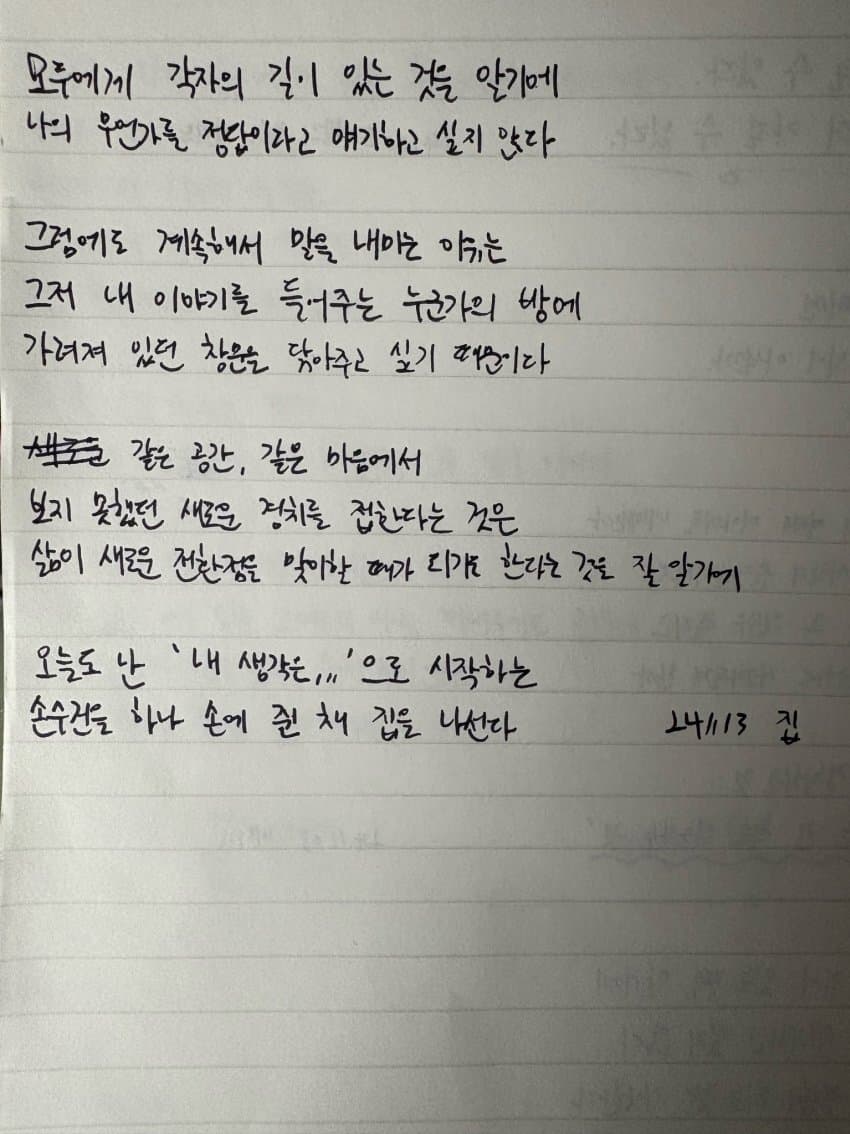 모두에게 각자의 길이 있는 것을 알기에
나의 무언가를 정답이라고 얘기하고 싶지 않다
그럼에도 계속해서 말을 내미는 이유는
그저 내 이야기를 들어주는 누군가의 방에
가려져 있던 창문을 닦아주고 싶기 때문이다
같은 공간, 같은 마음에서
보지 못했던 새로운 경치를 접한다는 것은
삶이 새로운 전환점을 맞이할 때가 되기도 한다는 것을 잘 알기에
오늘도 난 '내 생각은,,,'으로 시작하는
손수건을 하나 손에 쥔 채 집을 나선다 241113 집